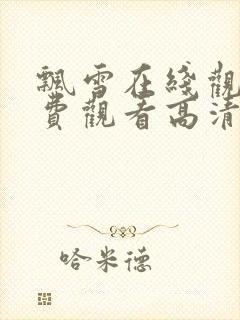 飄雪在綫觀
費觀看高清
哈米德